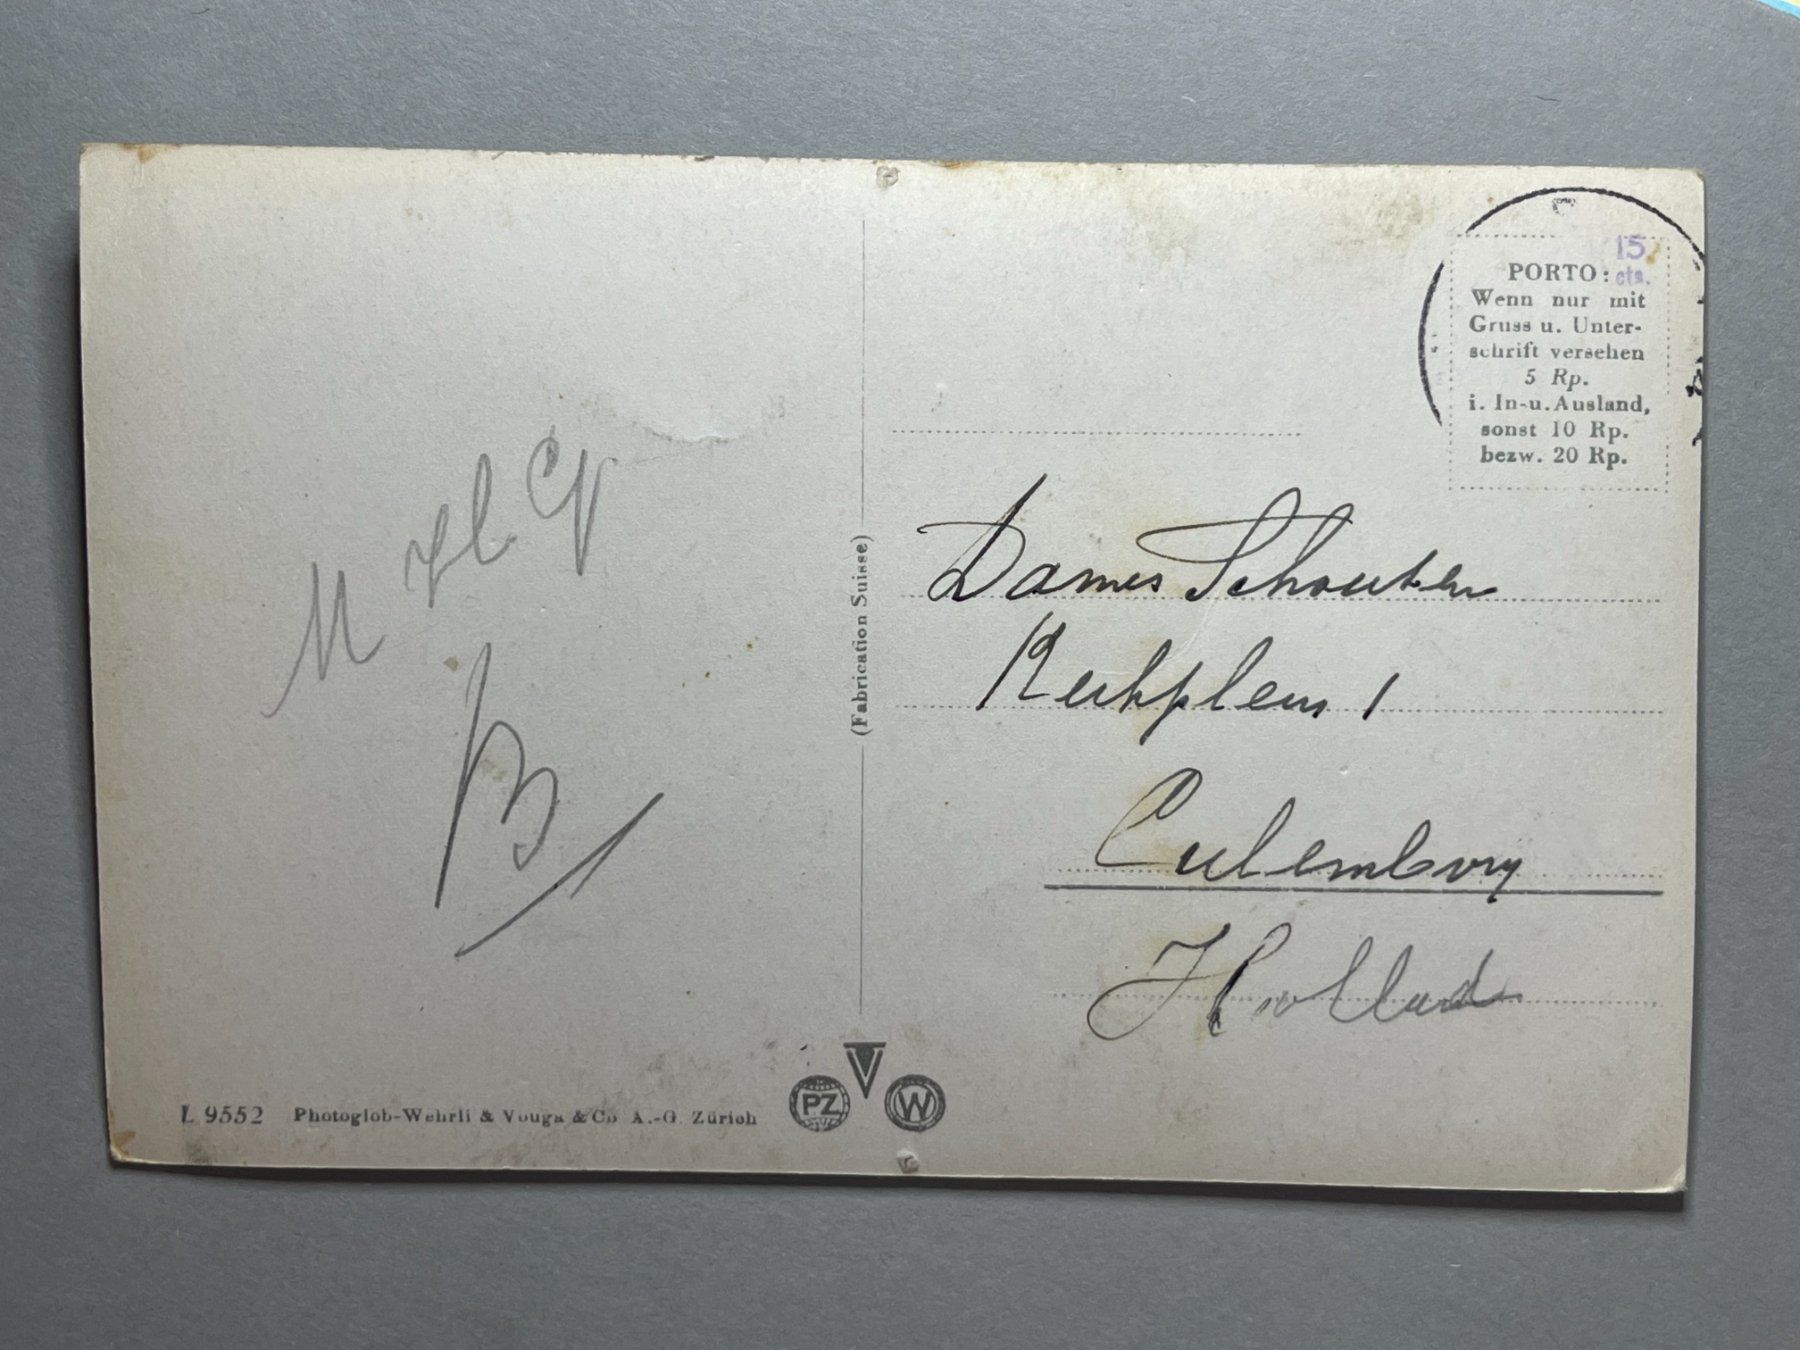 M Hl Gr
B
(Fabrication Suisse)
L 9552 Photoglob-Wehrli & Vouga & Co A.-G. Zürich
PZ
V
W
15
cts.
PORTO:
Wenn nur mit
Gruss u. Unter-
schrift versehen
5 Rp.
i. In-u. Ausland,
sonst 10 Rp.
bezw. 20 Rp.
Dames Schouten
Kerkplein 1
Culemborg
Holland